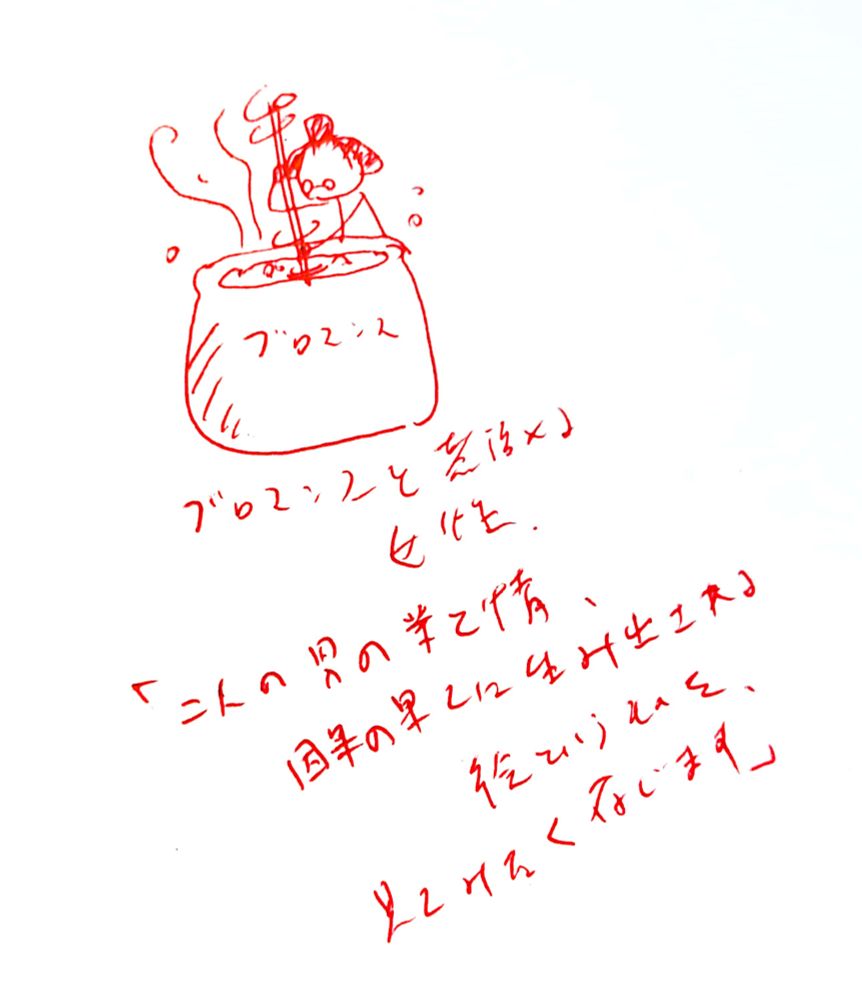 ブロマンス
ブロマンスと煮詰める
女性.
「二人の男の業と情、
因果の果てに生み出される
絵というものを、
見てみたく存じます」